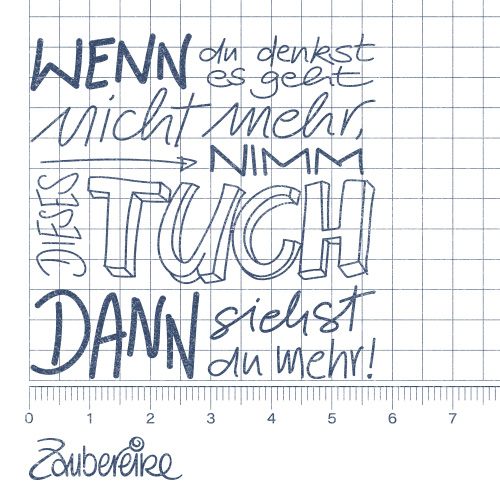 WENN du denkst
es geht
nicht mehr,
NIMM
DIESES TUCH
DANN siehst
du mehr!
0 1 2 3 4 5 6 7
Zaubereike